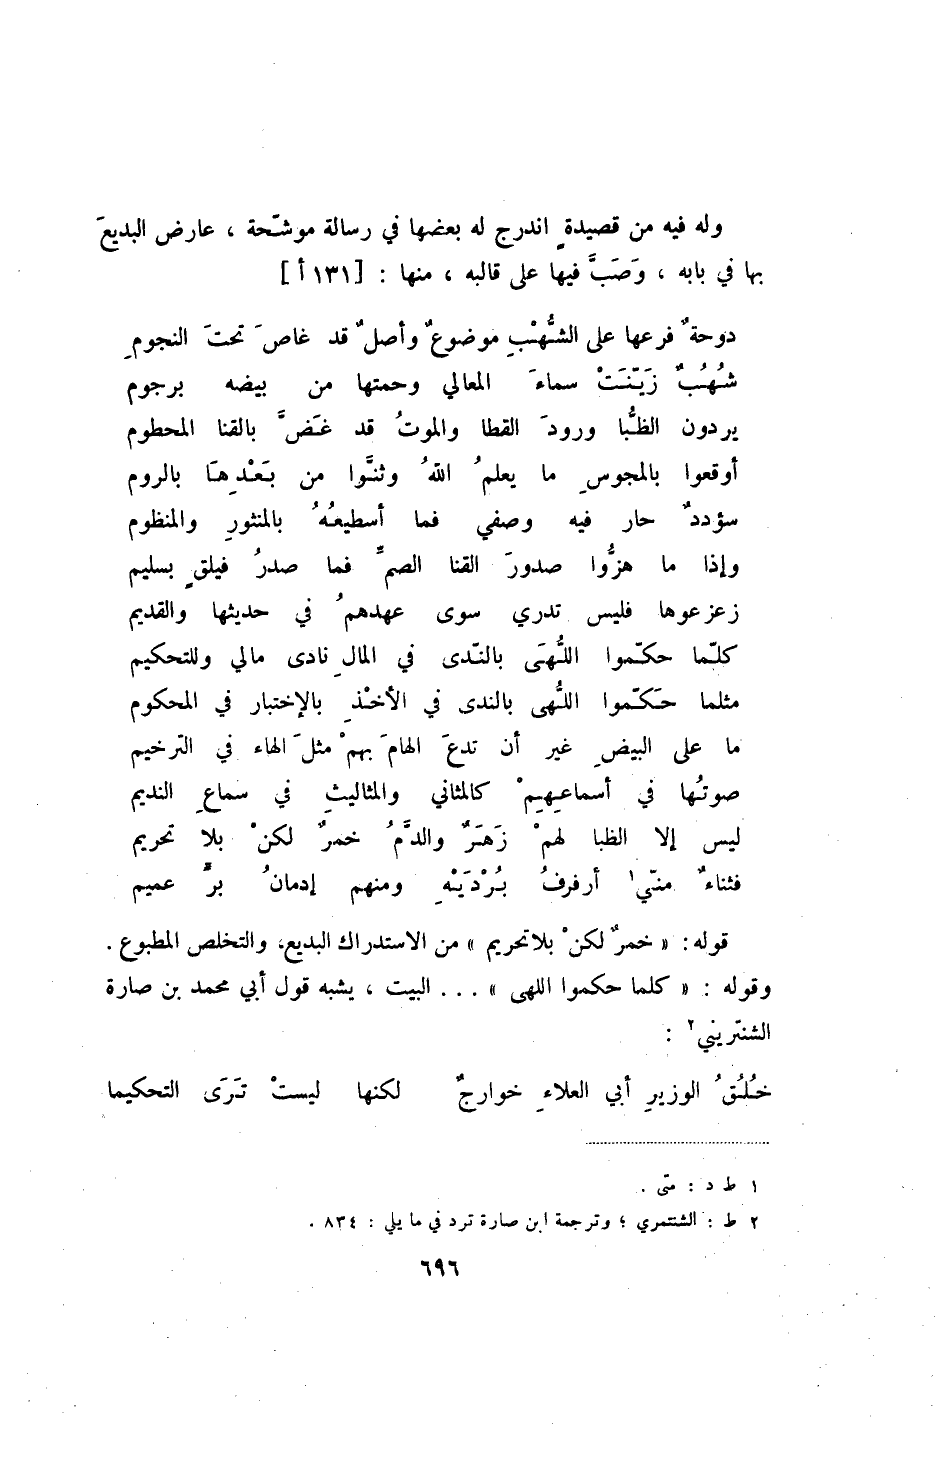 وله فيه من قصيدةٍ اندرج له بعضها في رسالة موشّحة ، عارض البديعَ
بها في بابه ، وَصَبَّ فيها على قالبه ، منها : [١٣١ أ]
دوحةٌ فرعها على الشُّهْبِ موضوعٌ وأصلٌ قد غاصَ تحتَ النجومِ
شُهُبٌ زَيّنَتْ سماءَ المعالي وحمتها من بيضه برجوم
يردون الظبُّا ورودَ القطا والموتُ قد غَضَّ بالقنا المحطوم
أوقعوا بالمجوسِ ما يعلمُ اللهُ وثنَّوا من بَعْدِهَا بالروم
سؤددٌ حار فيه وصفي فما أسطيعُهُ بالمنثورِ والمنظوم
وإذا ما هزُّوا صدورَ القنا الصمِّ فما صدرُ فيلقٍ بسليم
زعزعوها فليس تدري سوى عهدهمُ في حديثها والقديم
كلّما حكّموا اللُّهَى بالنّدى في المالِ نادى مالي وللتحكيم
مثلما حَكّموا اللُّهى بالندى في الأخْذِ بالإختبار في المحكوم
ما على البيضِ غير أن تدعَ الهامَ بهمْ مثلَ الهاء في التّرخيم
صوتُها في أسماعِهِمْ كالمثاني والمثاليثِ في سماعِ النديم
ليس إلا الظبا لهمْ زَهَرٌ والدَّمُ خمرٌ لكنْ بلا تحريم
فثناءٌ منّي١ أرفرفُ بُرْدَيْهِ ومنهم إدمانُ برٍّ عميم
قوله: « خمرٌ لكنْ بلا تحريم » من الاستدراك البديع، والتخلص المطبوع .
وقوله : « كلما حكموا اللهى » ... البيت ، يشبه قول أبي محمد بن صارة
الشنتّريني٢ :
خُلُقُ الوزيرِ أبي العلاءِ خوارجٌ لكنها ليستْ تَرَى التحكيما
١ ط د : متى .
٢ ط : الشنتمري ؛ وترجمة ابن صارة ترد في ما يلي : ٨٣٤ .
٦٩٦